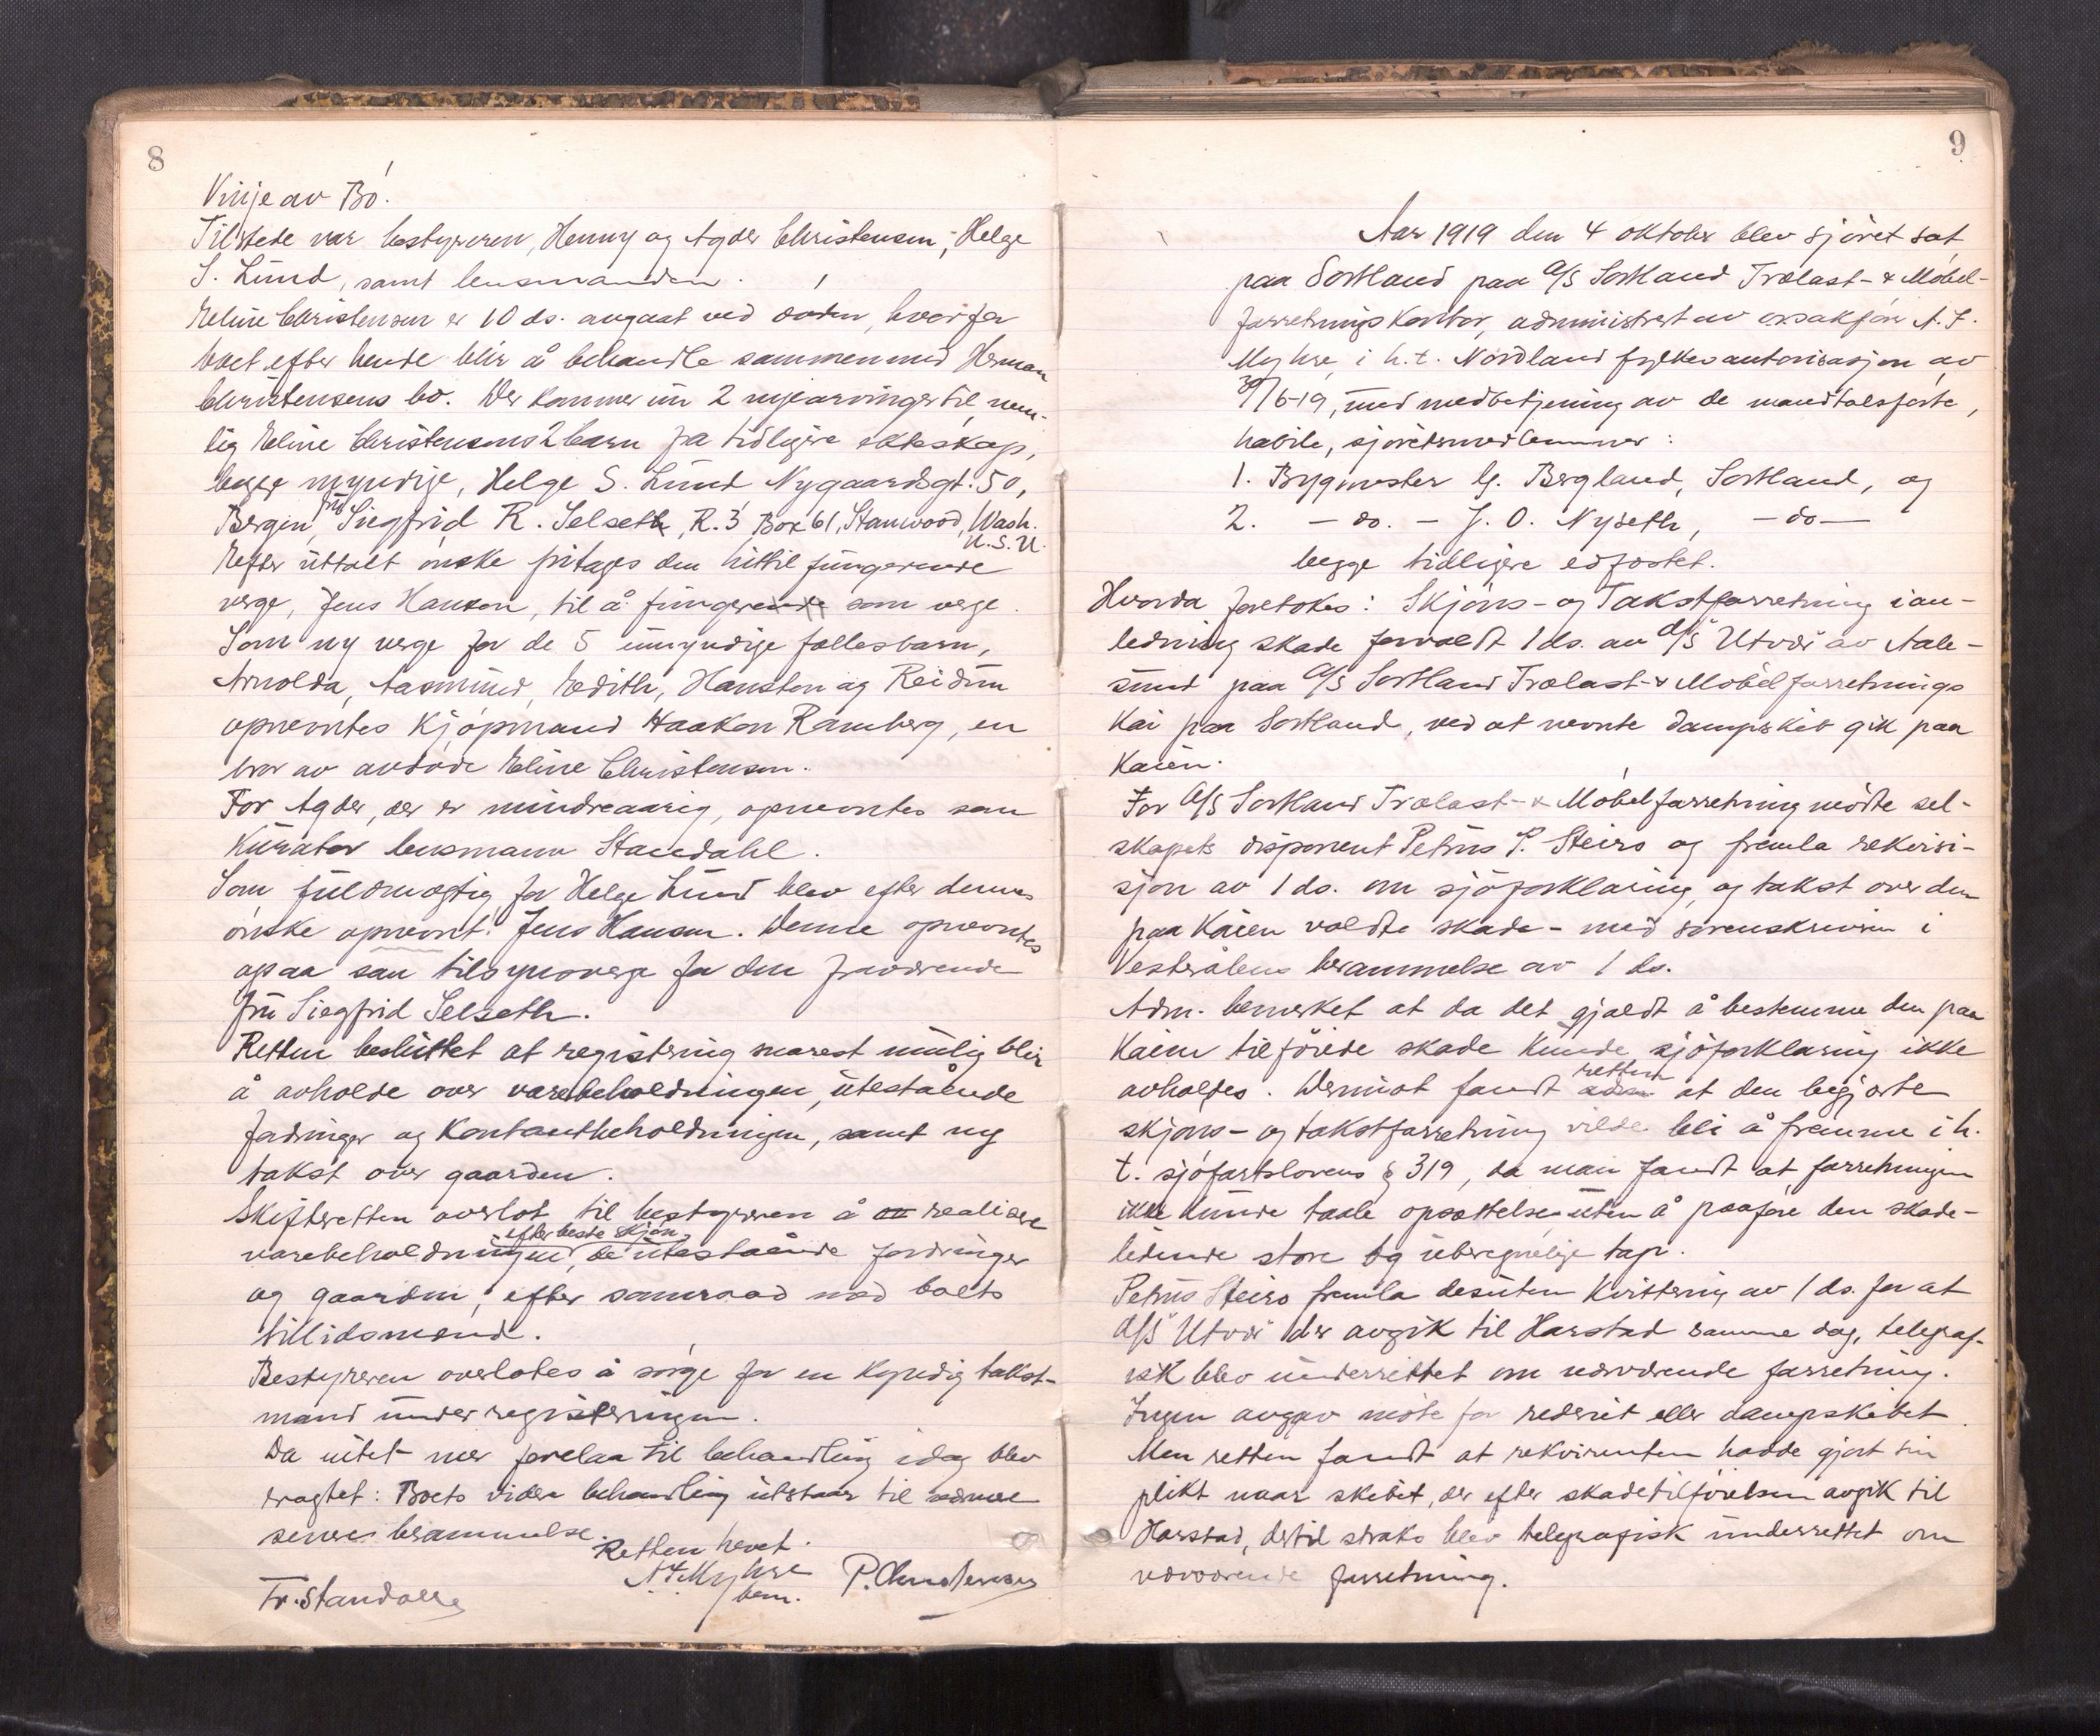 8
Vinje av Bö.
Tilstede var bestyreren, Henny og Agder Christensen, Helge
S. Lund, samt lensmanden.
Eline Christensen er 10 ds. avgaat ved döden, hvorfor
boet efter hende blir å behandle sammen med Herman
Christensens bo. Der kommer nu 2 nye arvinger til, nem-
lig Eline Christensens 2 barn fra tidligere ekteskap,
begge myndige, Helge S. Lund Nygaardsgt. 50,
Bergen, fru Siegfrid R. Selseth, R. 3 Box 61, Stanwood, Wash.
U.S.A.
Efter uttalt önske fritages den hittil fungerende
verge, Jens Hansen, til å fungere som verge.
Som ny verge for de 5 umyndige fællesbarn,
Arnolda, Aasmund, Edith, Hauston og Reidun
opnevntes Kjöpmand Haakon Ramberg, en
bror av avdöde Eline Christensen.
For Agder, der er mindreaarig, opnevntes som
Kurator lensmann Standahl.
Som fuldmægtig for Helge Lund blev efter dennes
önske opnevnt Jens Hansen. Denne opnevntes
ogsaa som tilsynsverge for den fraværende
fru Siegfrid Selseth.
Retten besluttet at registrering snarest mulig blir
å avholde over varebeholdningen, utestående
fordringer og Kontantbeholdningen, samt ny
takst over gaarden.
Skifteretten overlot til bestyreren å realisere
efter beste skjön,
varebeholdningen, de utestående fordringer
og gaarden, efter samraad med boets
tillidsmænd.
Bestyreren overlotes å sörge for en kyndig takst-
mand under registreringen.
Da intet mer forelaa til behandling idag blev
eragtet: Boets videre behandling utstaar til nærmere
senere berammelse.
Retten hevet.
A. F. Myhre
bem.
P. Christensen
Fr. Standahl
9
Aar 1919 den 4 oktober blev sjöret sat
paa Sortland paa A/S Sortland Trælast- & Möbel-
forretnings Kontor, administrert av A. F.
Myhre, i h.t. Nordland fylkes autorisasjon av
30/6-19, med medbetjening av de mandtalsförte,
habile, sjöretsmedlemmer:
1. Bygmester G. Bergland, Sortland, og
2. – do. – J. O. Nyseth, – do –
begge tidligere edfæstet.
Hvorda foretokes: Skjöns- og Takstforretning i an-
ledning skade forvoldt 1 ds. av d/s "Utvær" av Aale-
sund paa A/S Sortland Trælast- & Möbelforretnings
Kai paa Sortland, ved at nevnte dampskib gik paa
Kaien.
For A/S Sortland Trælast- & Möbelforretning mötte sel-
skapets disponent Petrus P. Steiro og fremla rekvisi-
sjon av 1 ds. om sjöforklaring, og takst over den
paa Kaien voldte skade – med sorenskriveren i
Vesterålens berammelse av 1 ds.
Adm. bemerket at da det gjældt å bestemme den paa
Kaien tilföiede skade kunde sjöforklaring ikke
avholdes. Derimot fandt retten at den begjærte
skjöns- og takstforretning vilde bli å fremme i h.
t. sjöfartslovens § 319, da man fandt at forretningen
ikke kunde taale opsættelse uten å paaföre den skade-
lidende store og uberegnelige tap.
Petrus Steiro fremla desuten Kvittering av 1 ds. for at
d/s "Utvær" der avgik til Harstad samme dag, telegraf-
isk blev underrettet om nærværende forretning.
Ingen avgav möte for rederiet eller dampskibet.
Men retten fandt at rekvirenten hadde gjort sin
plikt naar skibet, der efter skadetilföielsen avgik til
Harstad, dertil straks blev telegrafisk underrettet om
nærværende forretning.